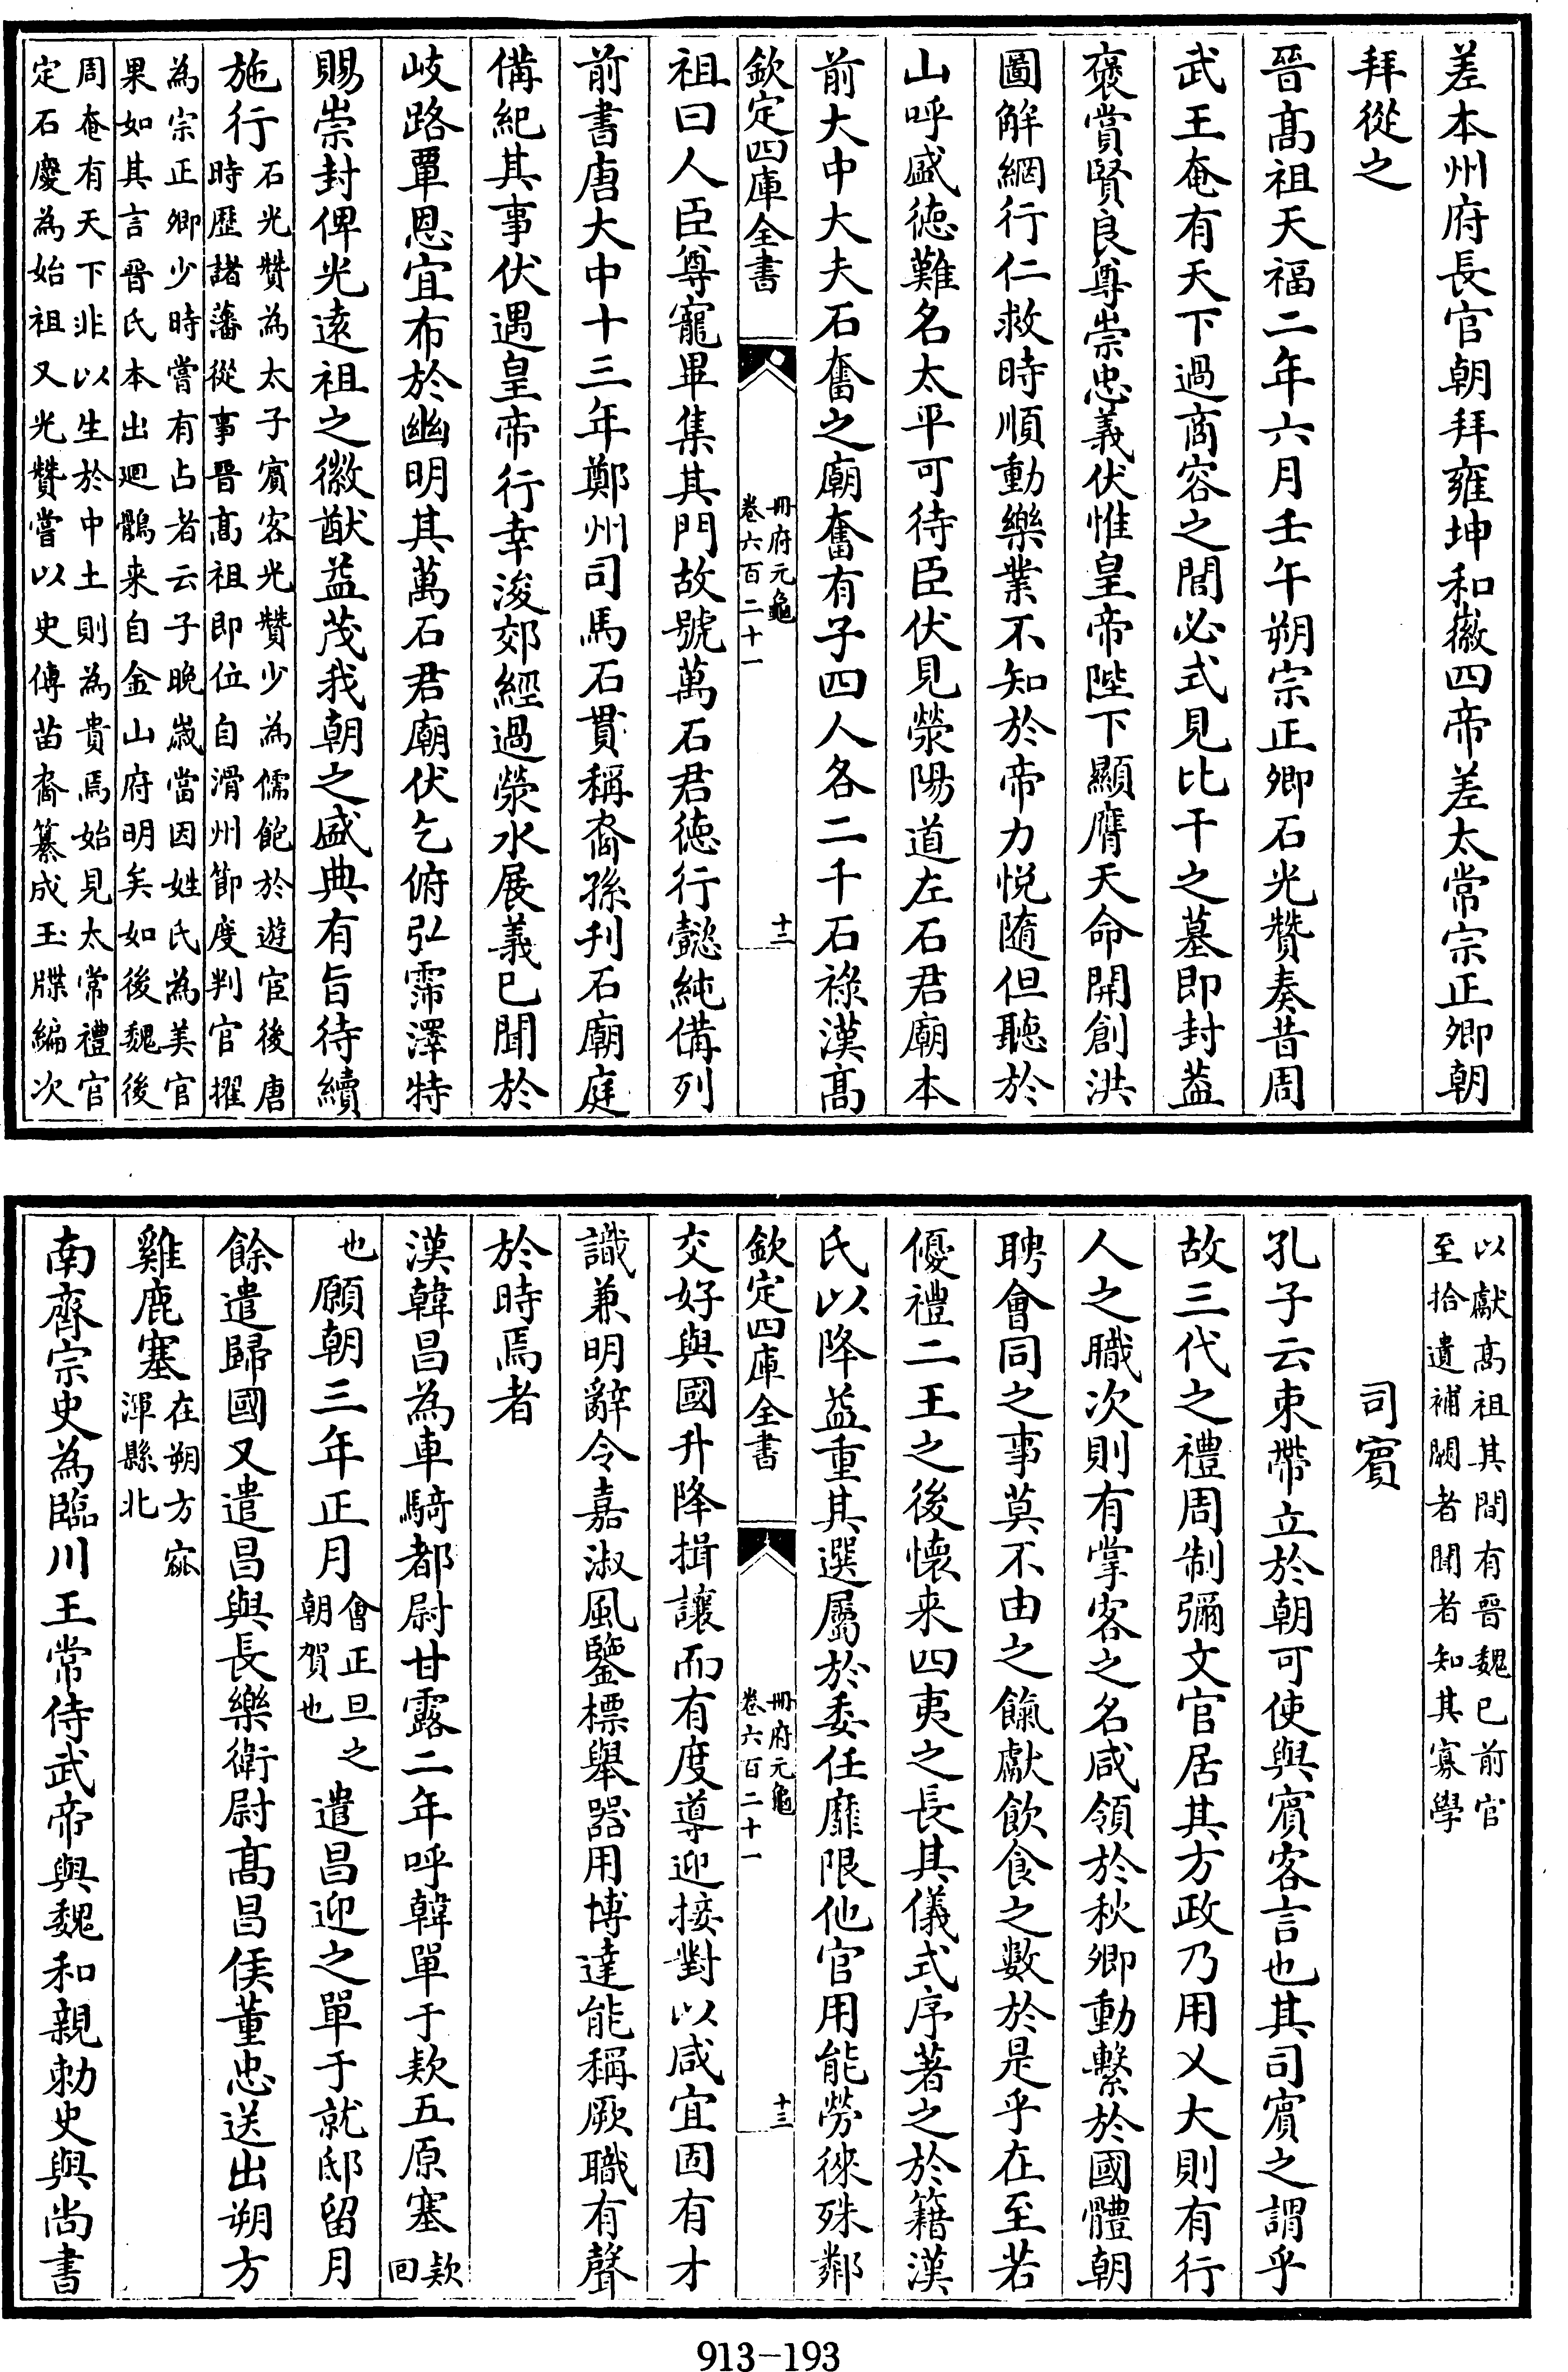 差本州府長官朝拜雍坤和徽四帝差太常宗正卿朝
拜從之
晉髙祖天福二年六月壬午朔宗正卿石光贊奏昔周
武王奄有天下過商容之閭必式見比干之墓即封葢
褒賞賢良尊崇忠義伏惟皇帝陛下顯膺天命開創洪
圖解網行仁救時順動樂業不知於帝力悦隨但聽於
山呼盛徳難名太平可待臣伏見滎陽道左石君廟本
前大中大夫石奮之廟奮有子四人各二千石禄漢髙
欽定四庫全書
冊府元龜
卷六百二十一
十二
祖曰人臣尊寵畢集其門故號萬石君徳行懿純備列
前書唐大中十三年鄭州司馬石貫稱裔孫刋石廟庭
備紀其事伏遇皇帝行幸浚郊經過滎水展義已聞於
岐路覃恩宜布於幽明其萬石君廟伏乞俯弘霈澤特
賜崇封俾光遠祖之徽猷益茂我朝之盛典有旨待續
施行
石光贊為太子賓客光贊少為儒飽於遊宦後唐
時歴諸藩從事晉髙祖即位自滑州節度判官擢
為宗正卿少時嘗有占者云子晩歳當因姓氏為美官
果如其言晉氏本出廻鶻来自金山府明矣如後魏後
周奄有天下非以生於中土則為貴焉始見太常禮官
定石慶為始祖又光贊嘗以史傳苗裔纂成玉牒編次
以獻髙祖其間有晉魏已前官
至拾遺補闕者聞者知其寡學
司賔
孔子云束帶立於朝可使與賓客言也其司賓之謂乎
故三代之禮周制彌文官居其方政乃用乂大則有行
人之職次則有掌客之名咸領於秋卿動繫於國體朝
聘會同之事莫不由之餼獻飲食之數於是乎在至若
優禮二王之後懷来四夷之長其儀式序著之於籍漢
氏以降益重其選屬於委任靡限他官用能勞徠殊鄰
欽定四庫全書
冊府元龜
卷六百二十一
十三
交好與國升降揖讓而有度導迎接對以咸宜固有才
識兼明辭令嘉淑風鑒標舉器用博達能稱厥職有聲
於時焉者
漢韓昌為車騎都尉甘露二年呼韓單于欵五原塞
欵
回
也
願朝三年正月
會正旦之
朝賀也
遣昌迎之單于就邸留月
餘遣歸國又遣昌與長樂衛尉髙昌侯董忠送出朔方
雞鹿塞
在朔方窳
渾縣北
南齊宗史為臨川王常侍武帝與魏和親勅史與尚書
913-193